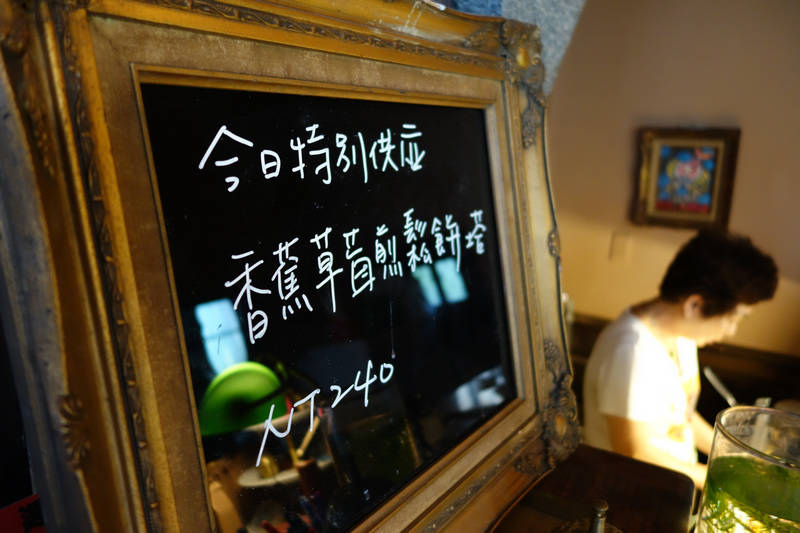 今日特別供应
香蕉草莓煎鬆餅塔
NT240